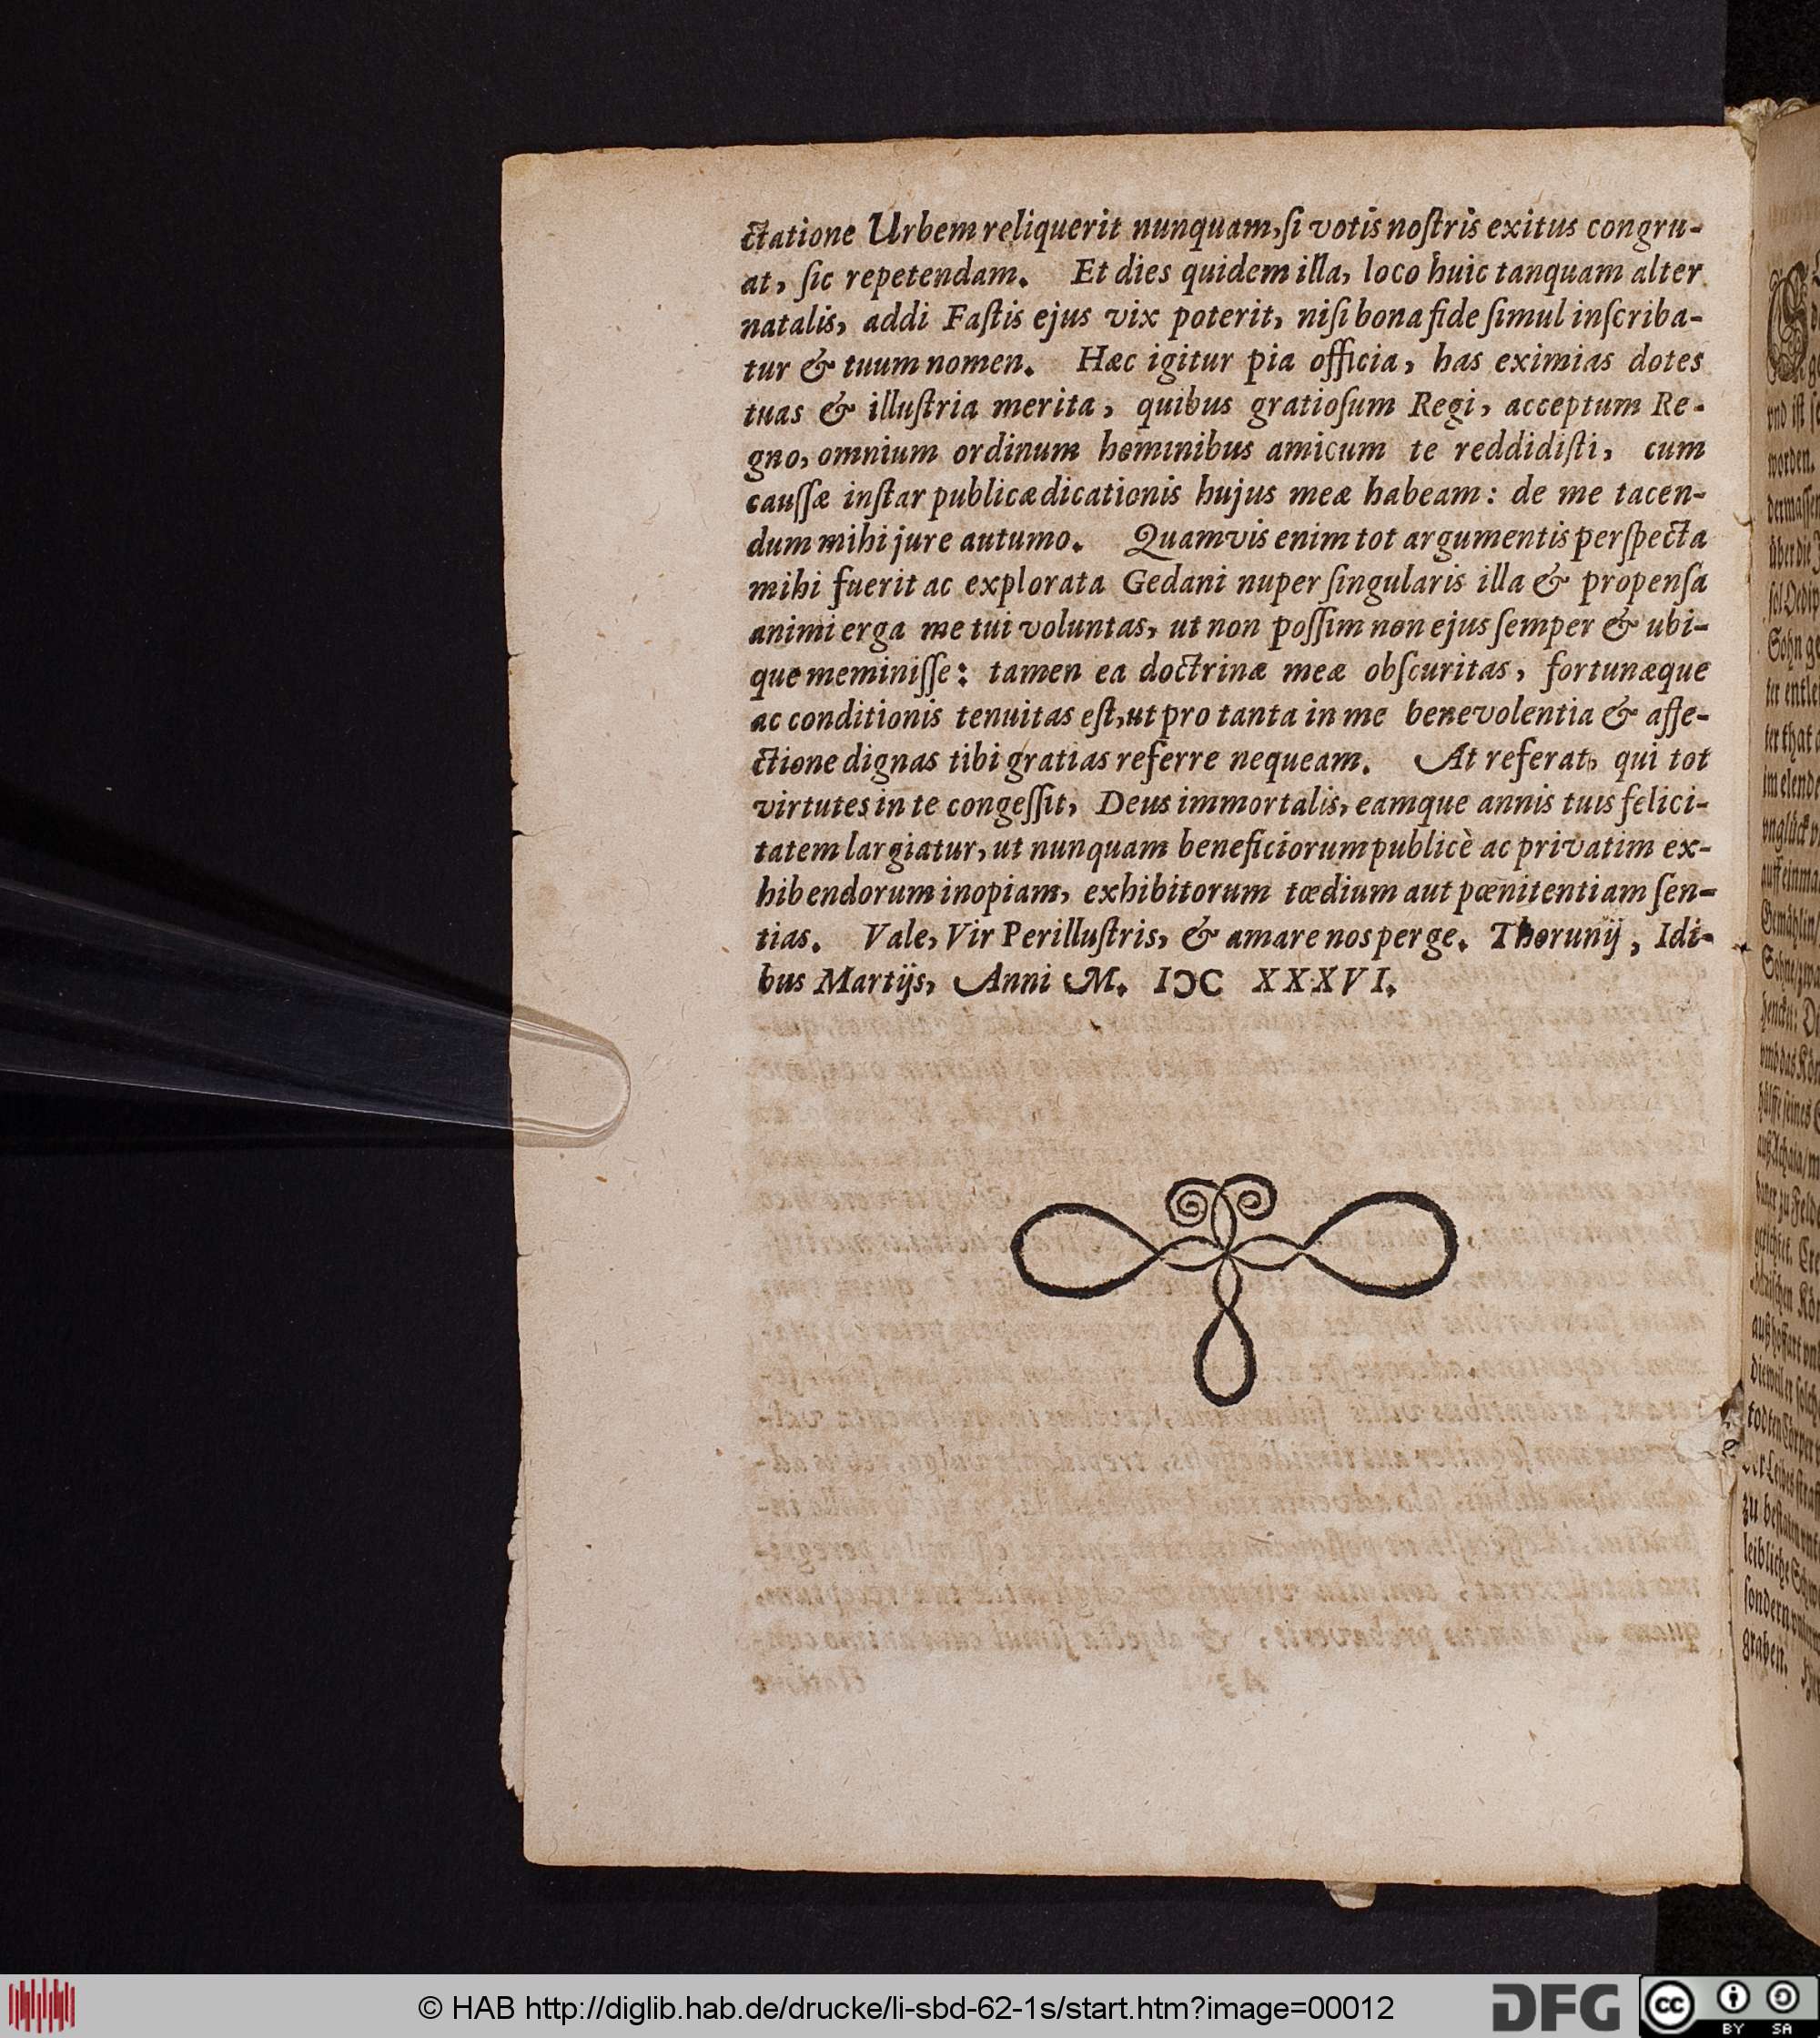 ctatione Urbem reliquerit nunquam, ſi votis noſtris exitus congru-
at, ſic repetendam. Et dies quidem illa, loco huic tanquam alter
natalis, addi Faſtis ejus vix poterit, niſi bona fide ſimul inſcriba-
tur & tuum nomen. Hæc igitur pia officia, has eximias dotes
tuas & illuſtria merita, quibus gratioſum Regi, acceptum Re-
gno, omnium ordinum hominibus amicum te reddidiſti, cum
cauſſæ inſtar publicæ dicationis hujus meæ habeam: de me tacen-
dum mihi jure autumo. Quamvis enim tot argumentis perſpecta
mihi fuerit ac explorata Gedani nuper ſingularis illa & propenſa
animi erga me tui voluntas, ut non poſſim non ejus ſemper & ubi-
que meminiſſe: tamen ea doctrinæ meæ obſcuritas, fortunæque
ac conditionis tenuitas eſt, ut pro tanta in me benevolentia & affe-
ctione dignas tibi gratias referre nequeam. At referat, qui tot
virtutes in te congeſſit, Deus immortalis, eamque annis tuis felici-
tatem largiatur, ut nunquam beneficiorum publicè ac privatim ex-
hibendorum inopiam, exhibitorum tœdium aut pœnitentiam ſen-
tias. Vale, Vir Perilluſtris, & amare nos perge. Thorunij, Idi-
bus Martijs, Anni M. IƆC XXXVI.
und iſt
worden.
Sohn
im elende
Gemählin/
graben.
© HAB http://diglib.hab.de/drucke/li-sbd-62-1s/start.htm?image=00012
DFG
cc
BY SA